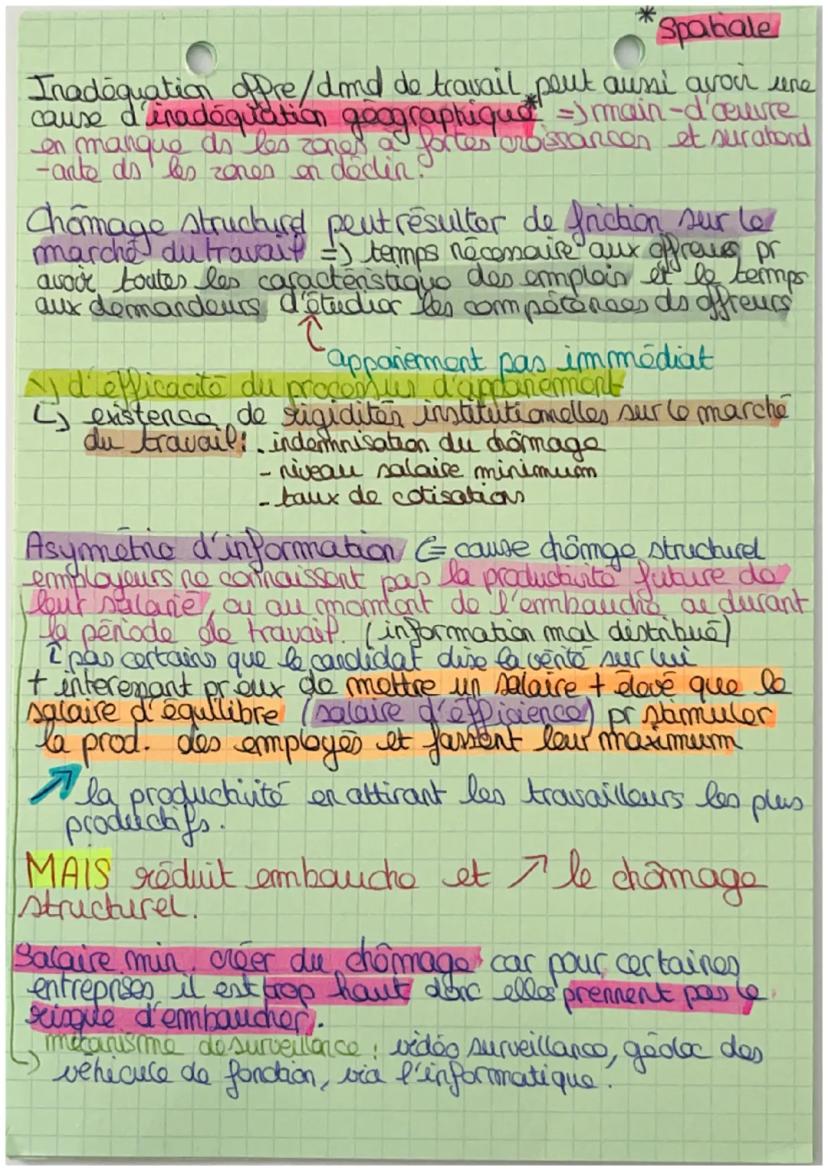 * Spatiale
Inadéquation offre/dmd de travail peut aussi avoir une
cause d'inadéquation géographique* => main-d'œuvre
en manque ds les zones à fortes croissances et surabond
-ante ds les zones en déclin.
Chômage structurel peut résulter de friction sur le
marché du travail => temps nécessaire aux offreurs pr
avoir toutes les caractéristique des emplois et le temps
aux demandeurs d'étudier les compétences ds offreurs
appariement pas immédiat
↘ d'efficacité du processus d'appariement
↳ existence de rigidités institutionnelles sur le marché
du travail : . indemnisation du chômage
- niveau salaire minimum
- taux de cotisations
Asymétrie d'information <= cause chômge structurel
employeurs ne connaissent pas la productivité future de
leur salarié, ou au moment de l'embauche ou durant
la période de travail. (information mal distribué)
↑ pas certains que le candidat dise la vérité sur lui
+ interessant pr eux de mettre un salaire + élevé que le
salaire d'équilibre (salaire d'efficience) pr stimuler
la prod. des employés et fassent leur maximum
↗ la productivité en attirant les travailleurs les plus
productifs.
MAIS réduit embauche et ↗ le chômage
structurel.
Salaire min. créer du chômage car pour certaines
entreprises il est trop haut donc elles prennent pas le
risque d'embaucher.
↳ mécanisme de surveillance : vidéo surveillance, géoloc des
véhicule de fonction, via l'informatique.